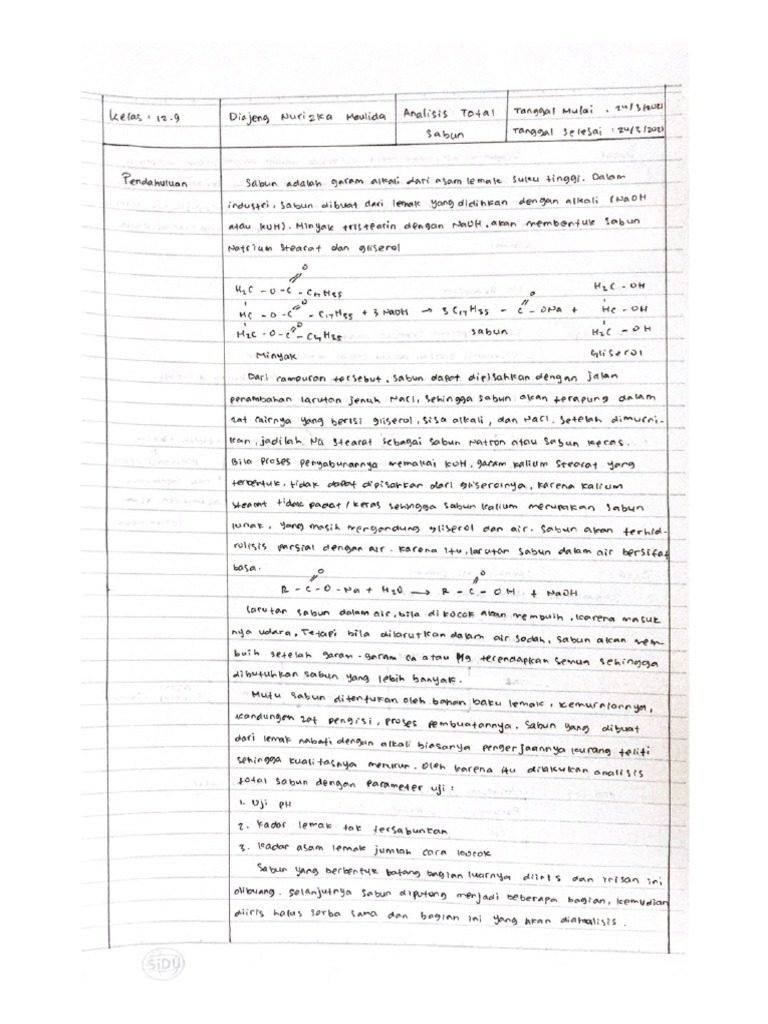 Kelas : 12.9
Diajeng Nurizka Maulida
Analisis Total
Sabun
Tanggal Mulai : 24/3/2021
Tanggal Selesai : 24/3/2021
Pendahuluan
Sabun adalah garam alkali dari asam lemak suku tinggi. Dalam
industri, sabun dibuat dari lemak yang dididihkan dengan alkali (NaOH
atau KOH). Minyak tristearin dengan NaOH, akan membentuk sabun
Natrium Stearat dan gliserol
O
H2C - O - C - C17H35 H2C - OH
HC - O - C - C17H35 + 3 NaOH → 3 C17H35 - C - ONa + HC - OH
H2C - O - C - C17H35 sabun H2C - OH
Minyak Gliserol
Dari campuran tersebut, sabun dapat dipisahkan dengan jalan
penambahan larutan jenuh NaCl, sehingga sabun akan terapung dalam
zat cairnya yang berisi gliserol, sisa alkali, dan NaCl. Setelah dimurni-
kan, jadilah Na Stearat sebagai sabun Natron atau sabun keras.
Bila proses penyabunannya memakai KOH, garam kalium stearat yang
terbentuk, tidak dapat dipisahkan dari gliserolnya, karena kalium
stearat tidak padat/keras sehingga sabun kalium merupakan sabun
lunak, yang masih mengandung gliserol dan air. Sabun akan terhid-
rolisis parsial dengan air. Karena itu, larutan sabun dalam air bersifat
basa.
O O
R - C - O - Na + H2O → R - C - OH + NaOH
Larutan sabun dalam air, bila dikocok akan membuih, karena masuk
nya udara, Tetapi bila dilarutkan dalam air sadah, sabun akan mem-
buih setelah garam-garam Ca atau Mg terendapkan semua sehingga
dibutuhkan sabun yang lebih banyak.
Mutu sabun ditentukan oleh bahan baku lemak, kemurniannya,
kandungan zat pengisi, proses pembuatannya. Sabun yang dibuat
dari lemak nabati dengan alkali biasanya pengerjaannya kurang teliti
sehingga kualitasnya menurun. Oleh karena itu dilakukan analisis
total sabun dengan parameter uji :
1. Uji pH
2. Kadar lemak tak tersabunkan
3. Kadar asam lemak jumlah cara kocok
Sabun yang berbentuk batang bagian luarnya diiris dan irisan ini
dibuang. Selanjutnya sabun dipotong menjadi beberapa bagian, kemudian
diiris halus serba sama dan bagian ini yang akan dianalisis.
SiDU